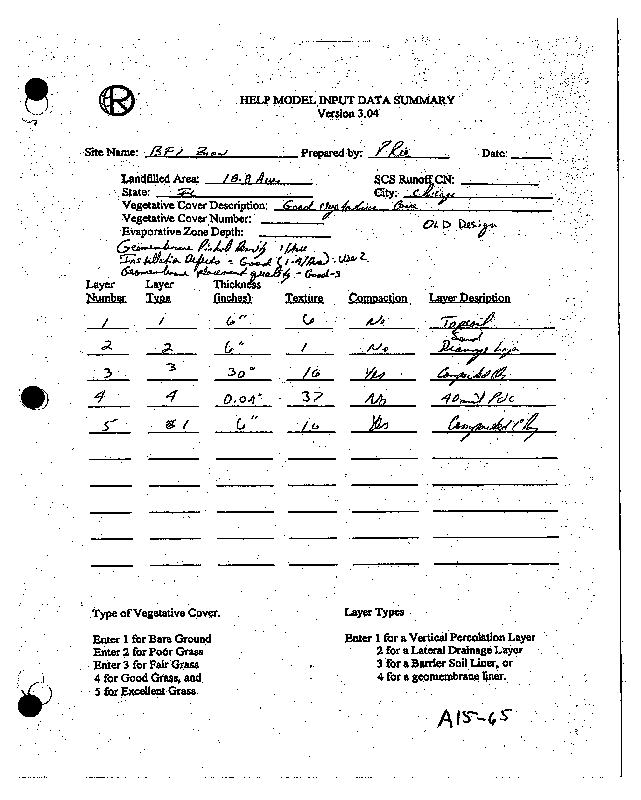 HELP MODEL INPUT DATA SUMMARY
Version 3.04
Site Name: BFI Zion Prepared by: P Rie Date:
Landfilled Area: 18.8 Acres SCS Runoff CN:
State: IL City: Chicago
Vegetative Cover Description: Good vegetative Cover
Vegetative Cover Number: OLD Design
Evaporative Zone Depth:
Geomembrane Pinhol Density 1/Acre
Installation Defects - Good (1-4/Acre) - Use 2
Geomembrane placement quality - Good-3
Layer Number Layer Type Thickness (inches) Texture Compaction Layer Desription
1 1 6" 6 No Topsoil
2 2 6" 1 No Sand Drainage Layer
3 3 30" 16 Yes Compacted Clay
4 4 0.04" 37 No 40 mil PVC
5 1 6" 16 Yes Compacted Clay
Type of Vegetative Cover. Layer Types
Enter 1 for Bare Ground Enter 1 for a Vertical Percolation Layer
Enter 2 for Poor Grass 2 for a Lateral Drainage Layer
Enter 3 for Fair Grass 3 for a Barrier Soil Liner, or
4 for Good Grass, and 4 for a geomembrane liner.
5 for Excellent Grass.
A15-65